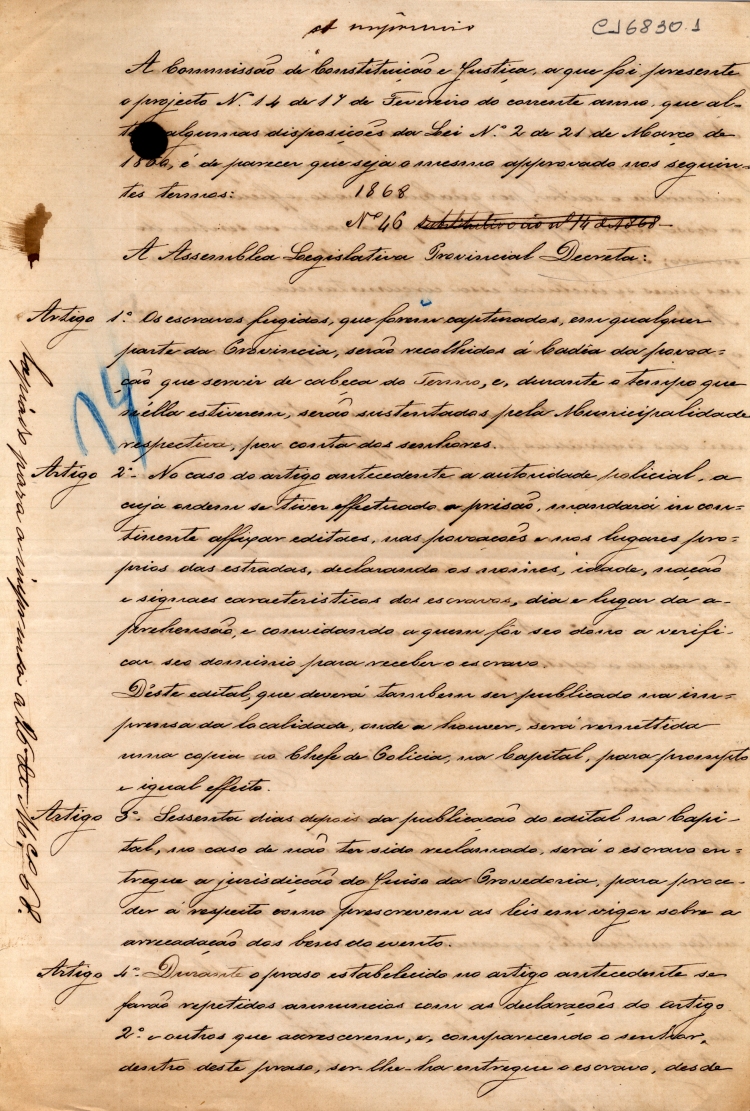 A imprimir
CJ6830.1
A Commissão de Constituição e Justiça, a que foi presente
o projecto Nº 14 de 17 de Fevereiro do corrente anno, que al-
algumas disposições da Lei Nº 2 de 21 de Março de
1860, é de parecer que seja o mesmo approvado nos seguin-
tes termos:
1868
Nº 46 substitutivo ao nº 14 de 1868
A Assemblea Legislativa Provincial Decreta:
Artigo 1º Os escravos fugidos, que forem capturados, em qualquer
parte da Provincia, serão recolhidos á Cadêa da povoa-
ção que servir de cabeça do Termo, e, durante o tempo que
n'ella estiverem, serão sustentados pela Municipalidade
respectiva, por conta dos senhores.
Artigo 2º No caso do artigo antecedente a autoridade policial, a
cuja ordem se tiver effectuado a prisão, mandará incon-
tinente affixar editaes, nas povoações e nos lugares pro-
prios das estradas, declarando os nomes, idade, nação
e signaes caracteristicos dos escravos, dia e lugar da a-
prehensão, e convidando a quem fôr seo dono a verifi-
car seo dominio para receber o escravo.
Dêste edital, que deverá tambem ser publicado na im-
prensa da localidade, onde a houver, será remettida
uma copia ao Chefe de Policia, na Capital, para prompto
e igual effeito.
Artigo 3º Sessenta dias depois da publicação do edital na Capi-
tal, no caso de não ter sido reclamado, será o escravo en-
tregue a jurisdicção do Juiso da Provedoria, para proce-
der á respeito como prescrevem as leis em vigor sobre a
arrecadação dos bens do evento.
Artigo 4º Durante o praso estabelecido no artigo antecedente se
farão repetidos annuncios com as declarações do artigo
2º e outros que accrescerem, e, comparecendo o senhor,
dentro deste praso, ser-lhe-ha entregue o escravo, desde
14
Copiado para a imprensa a 26 de Mço 68.